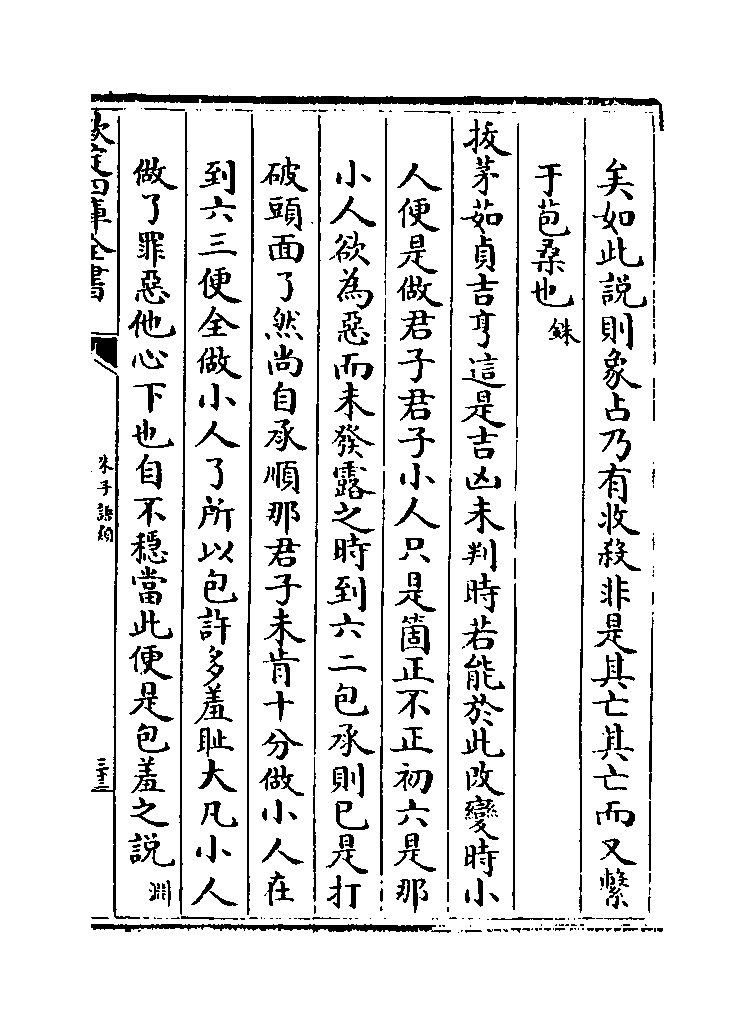 矣如此說則象占乃有收殺非是其亡其亡而又繫
于苞桑也銖
拔茅茹貞吉亨這是吉凶未判時若能於此改變時小
人便是做君子君子小人只是箇正不正初六是那
小人欲為惡而未發露之時到六二包承則已是打
破頭面了然尚自承順那君子未肯十分做小人在
到六三便全做小人了所以包許多羞耻大凡小人
做了罪惡他心下也自不穩當此便是包羞之說淵
欽定四庫全書
朱子語類